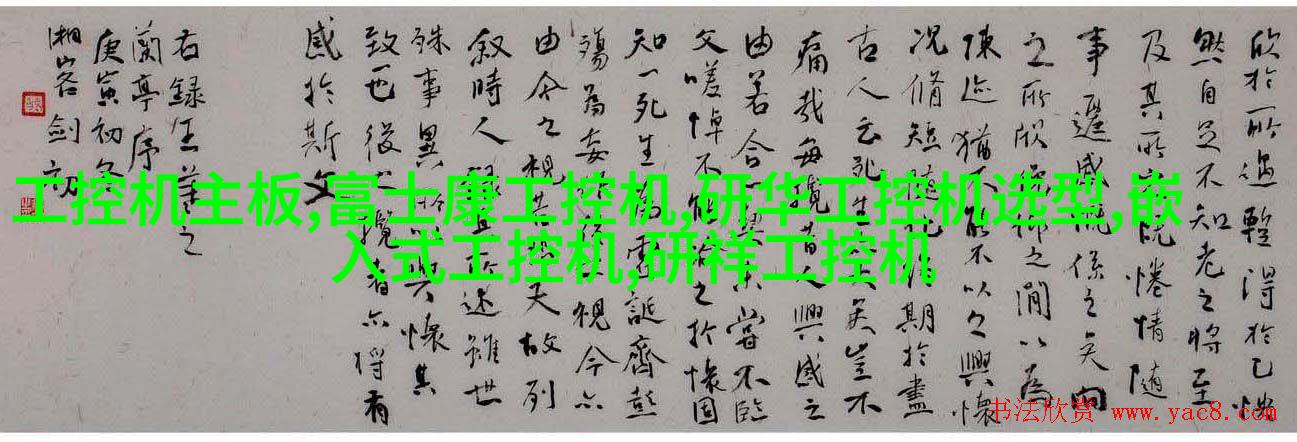 欣於所遇暫得於己快
然自足不知老之將至
及其所既倦情隨
事遷感係之矣向
之所欣仰之間以為
陳迹猶不能不以之興懷
況修短隨化期於盡
古人云死生大矣豈不
痛哉每攬昔人興感之
由若合契未嘗不臨
文嗟悼不能之於懷固
知一死生為虛誕齊彭
殤為妄後視今亦
由今之視昔夫故列
敘時人錄其所述雖世
殊事異所以興懷其
致一也後之攬者亦將有
感於斯文
右錄王羲之
蘭亭序
庚寅初冬
湘山客劍初
工控机主板,富士康工控机,研华工控机选型,嵌
入式工控机,研祥工控机
书法欣赏 www.yac8.com